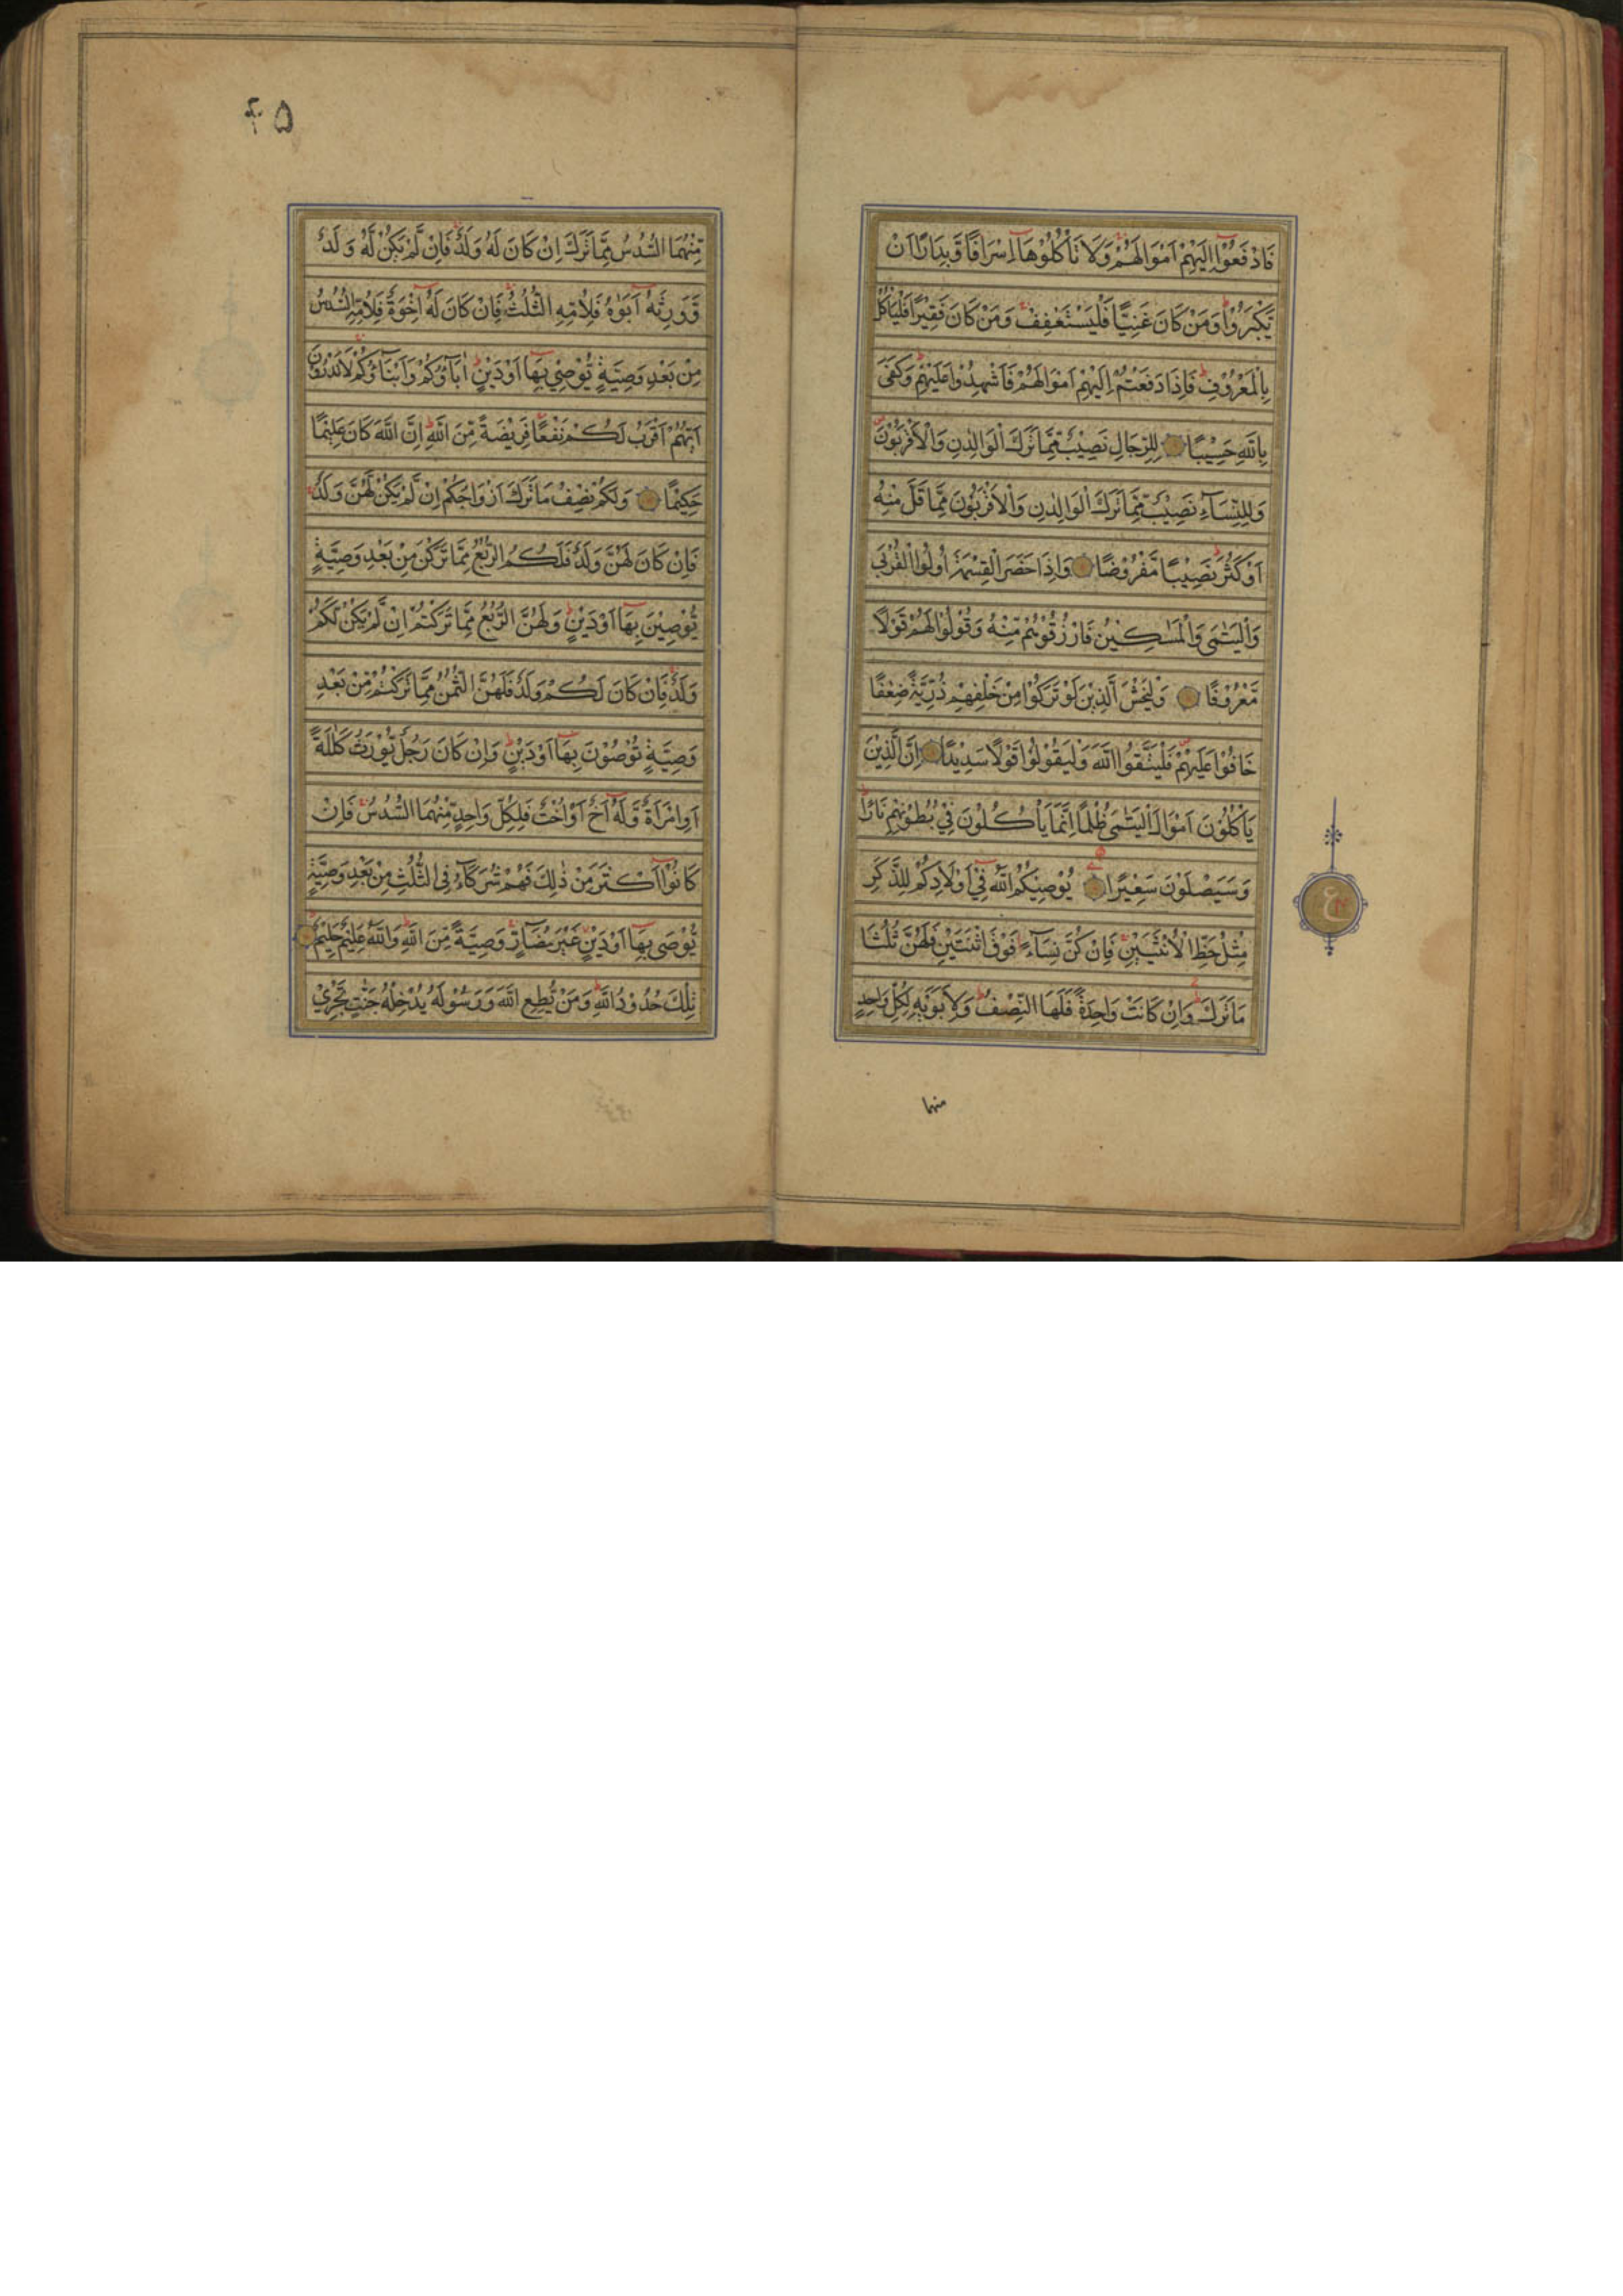 فَادْفَعُوْٓا اِلَيْهِمْ اَمْوَالَهُمْ ۚ وَلَا تَاْكُلُوْهَآ اِسْرَافًا وَّبِدَارًا اَنْ
يَّكْبَرُوْا ؕ وَمَنْ كَانَ غَنِيًّا فَلْيَسْتَعْفِفْ ۚ وَمَنْ كَانَ فَقِيْرًا فَلْيَاْكُلْ
بِالْمَعْرُوْفِ ؕ فَاِذَا دَفَعْتُمْ اِلَيْهِمْ اَمْوَالَهُمْ فَاَشْهِدُوْا عَلَيْهِمْ ؕ وَكَفٰى
بِاللّٰهِ حَسِيْبًا لِلرِّجَالِ نَصِيْبٌ مِّمَّا تَرَكَ الْوَالِدٰنِ وَالْاَقْرَبُوْنَ ص
وَلِلنِّسَآءِ نَصِيْبٌ مِّمَّا تَرَكَ الْوَالِدٰنِ وَالْاَقْرَبُوْنَ مِمَّا قَلَّ مِنْهُ
اَوْ كَثُرَ ؕ نَصِيْبًا مَّفْرُوْضًا وَاِذَا حَضَرَ الْقِسْمَةَ اُولُوا الْقُرْبٰى
وَالْيَتٰمٰى وَالْمَسٰكِيْنُ فَارْزُقُوْهُمْ مِّنْهُ وَقُوْلُوْا لَهُمْ قَوْلًا
مَّعْرُوْفًا وَلْيَخْشَ الَّذِيْنَ لَوْ تَرَكُوْا مِنْ خَلْفِهِمْ ذُرِّيَّةً ضِعٰفًا
خَافُوْا عَلَيْهِمْ ص فَلْيَتَّقُوا اللّٰهَ وَلْيَقُوْلُوْا قَوْلًا سَدِيْدًا اِنَّ الَّذِيْنَ
يَاْكُلُوْنَ اَمْوَالَ الْيَتٰمٰى ظُلْمًا اِنَّمَا يَاْكُلُوْنَ فِيْ بُطُوْنِهِمْ نَارًا ؕ
وَسَيَصْلَوْنَ سَعِيْرًا يُوْصِيْكُمُ اللّٰهُ فِيْٓ اَوْلَادِكُمْ لِلذَّكَرِ
مِثْلُ حَظِّ الْاُنْثَيَيْنِ ۚ فَاِنْ كُنَّ نِسَآءً فَوْقَ اثْنَتَيْنِ فَلَهُنَّ ثُلُثَا
مَا تَرَكَ ۚ وَاِنْ كَانَتْ وَاحِدَةً فَلَهَا النِّصْفُ ؕ وَلِاَبَوَيْهِ لِكُلِّ وَاحِدٍ
منهما
ع
۴۵
مِّنْهُمَا السُّدُسُ مِمَّا تَرَكَ اِنْ كَانَ لَهٗ وَلَدٌ ۚ فَاِنْ لَّمْ يَكُنْ لَّهٗ وَلَدٌ
وَّوَرِثَهٗٓ اَبَوٰهُ فَلِاُمِّهِ الثُّلُثُ ۚ فَاِنْ كَانَ لَهٗٓ اِخْوَةٌ فَلِاُمِّهِ السُّدُسُ
مِنْ بَعْدِ وَصِيَّةٍ يُّوْصِيْ بِهَآ اَوْ دَيْنٍ ؕ اٰبَآؤُكُمْ وَاَبْنَآؤُكُمْ ۚ لَا تَدْرُوْنَ
اَيُّهُمْ اَقْرَبُ لَكُمْ نَفْعًا ؕ فَرِيْضَةً مِّنَ اللّٰهِ ؕ اِنَّ اللّٰهَ كَانَ عَلِيْمًا
حَكِيْمًا وَلَكُمْ نِصْفُ مَا تَرَكَ اَزْوَاجُكُمْ اِنْ لَّمْ يَكُنْ لَّهُنَّ وَلَدٌ ۚ
فَاِنْ كَانَ لَهُنَّ وَلَدٌ فَلَكُمُ الرُّبُعُ مِمَّا تَرَكْنَ مِنْ بَعْدِ وَصِيَّةٍ
يُّوْصِيْنَ بِهَآ اَوْ دَيْنٍ ؕ وَلَهُنَّ الرُّبُعُ مِمَّا تَرَكْتُمْ اِنْ لَّمْ يَكُنْ لَّكُمْ
وَلَدٌ ۚ فَاِنْ كَانَ لَكُمْ وَلَدٌ فَلَهُنَّ الثُّمُنُ مِمَّا تَرَكْتُمْ مِّنْ بَعْدِ
وَصِيَّةٍ تُوْصُوْنَ بِهَآ اَوْ دَيْنٍ ؕ وَاِنْ كَانَ رَجُلٌ يُّوْرَثُ كَلٰلَةً
اَوِ امْرَاَةٌ وَّلَهٗٓ اَخٌ اَوْ اُخْتٌ فَلِكُلِّ وَاحِدٍ مِّنْهُمَا السُّدُسُ ۚ فَاِنْ
كَانُوْٓا اَكْثَرَ مِنْ ذٰلِكَ فَهُمْ شُرَكَآءُ فِى الثُّلُثِ مِنْ بَعْدِ وَصِيَّةٍ
يُّوْصٰى بِهَآ اَوْ دَيْنٍ غَيْرَ مُضَآرٍّ ۚ وَصِيَّةً مِّنَ اللّٰهِ ؕ وَاللّٰهُ عَلِيْمٌ حَلِيْمٌ ؕ
تِلْكَ حُدُوْدُ اللّٰهِ ؕ وَمَنْ يُّطِعِ اللّٰهَ وَرَسُوْلَهٗ يُدْخِلْهُ جَنّٰتٍ تَجْرِيْ